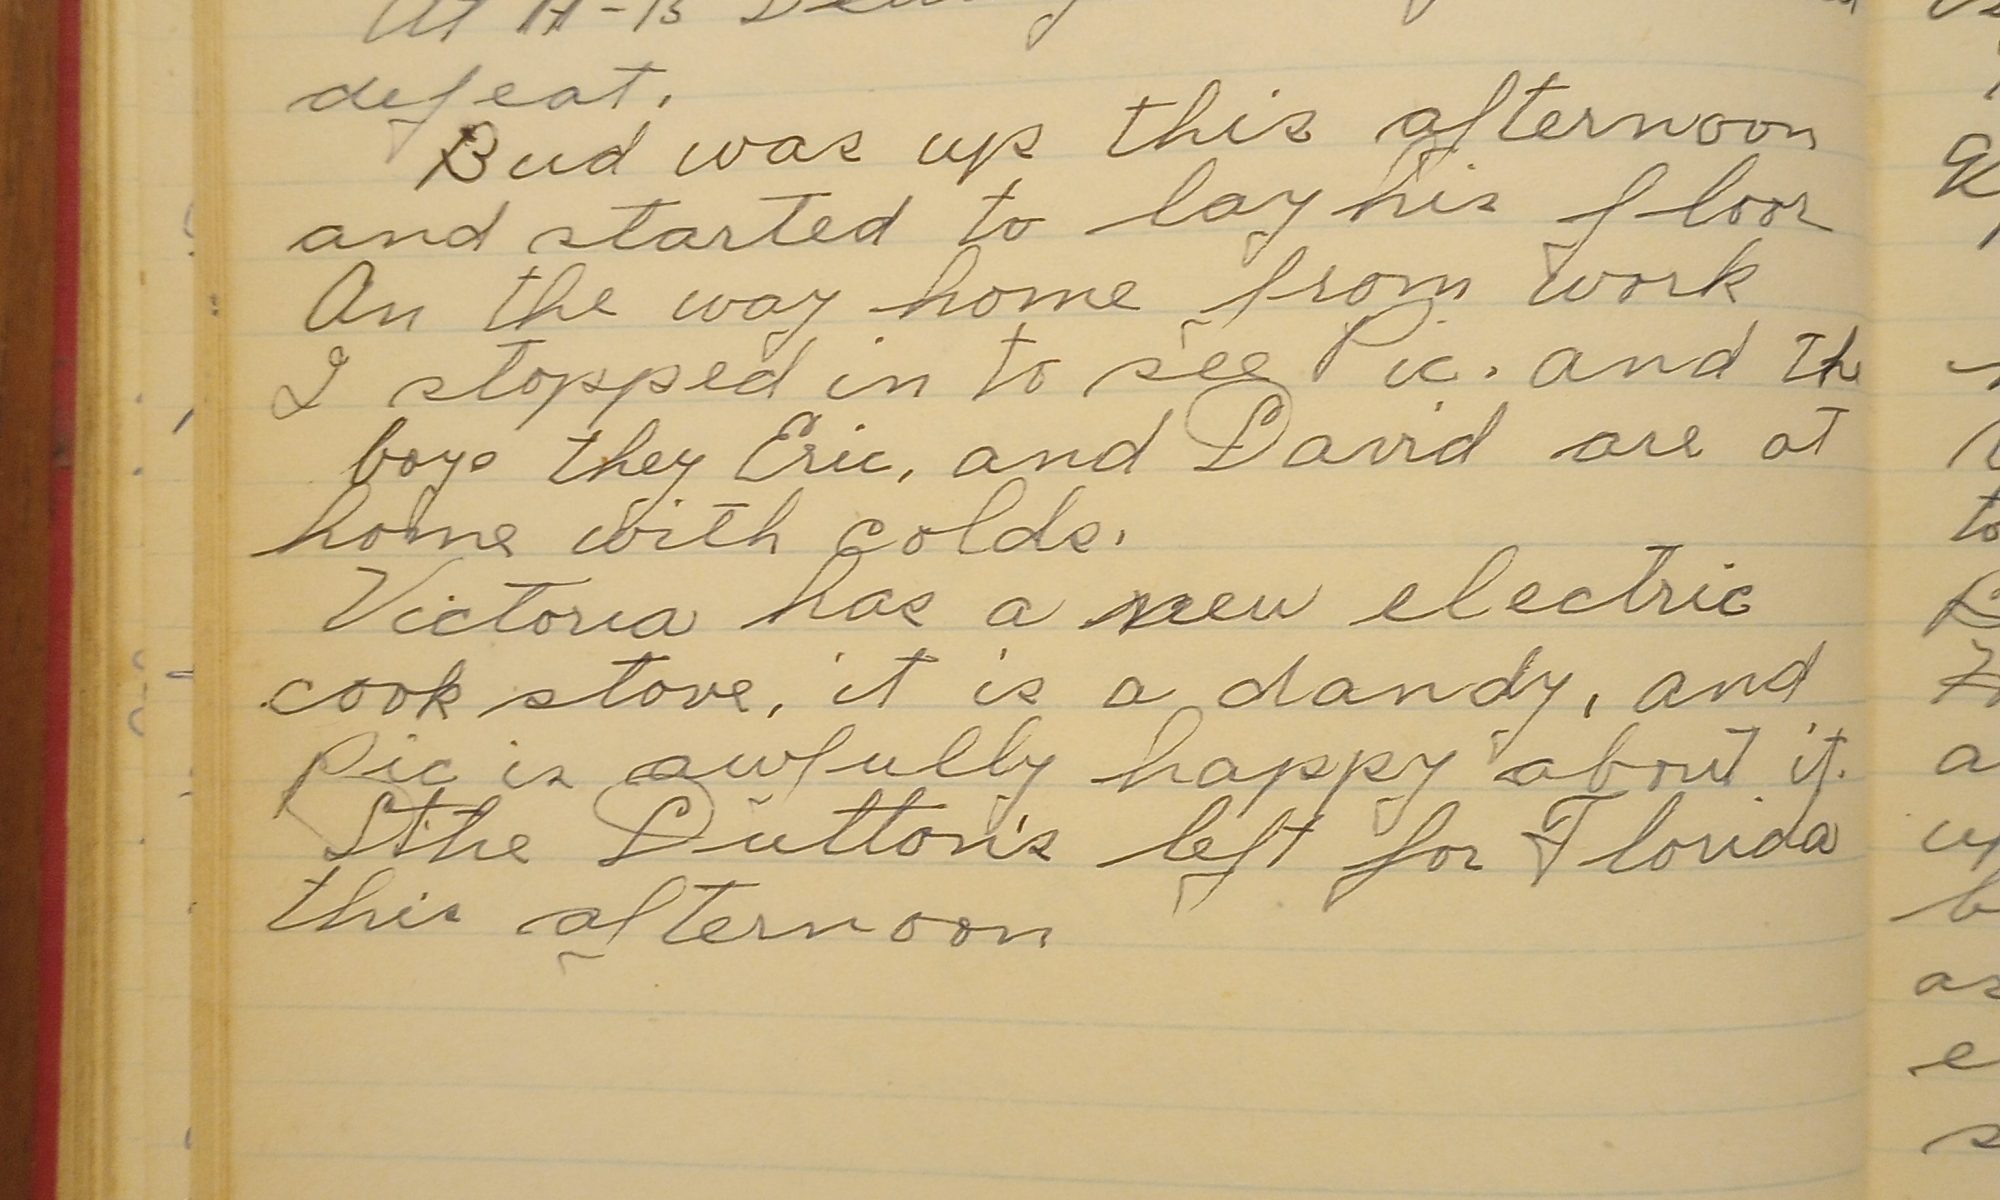 At H-B
defeat.
Bud was up this afternoon
and started to lay his floor
On the way home from work
I stopped in to see Pic. and the
boys they Eric, and David are at
home with colds.
Victoria has a new electric
cook stove, it is a dandy, and
Pic is awfully happy about it.
The Dutton's left for Florida
this afternoon